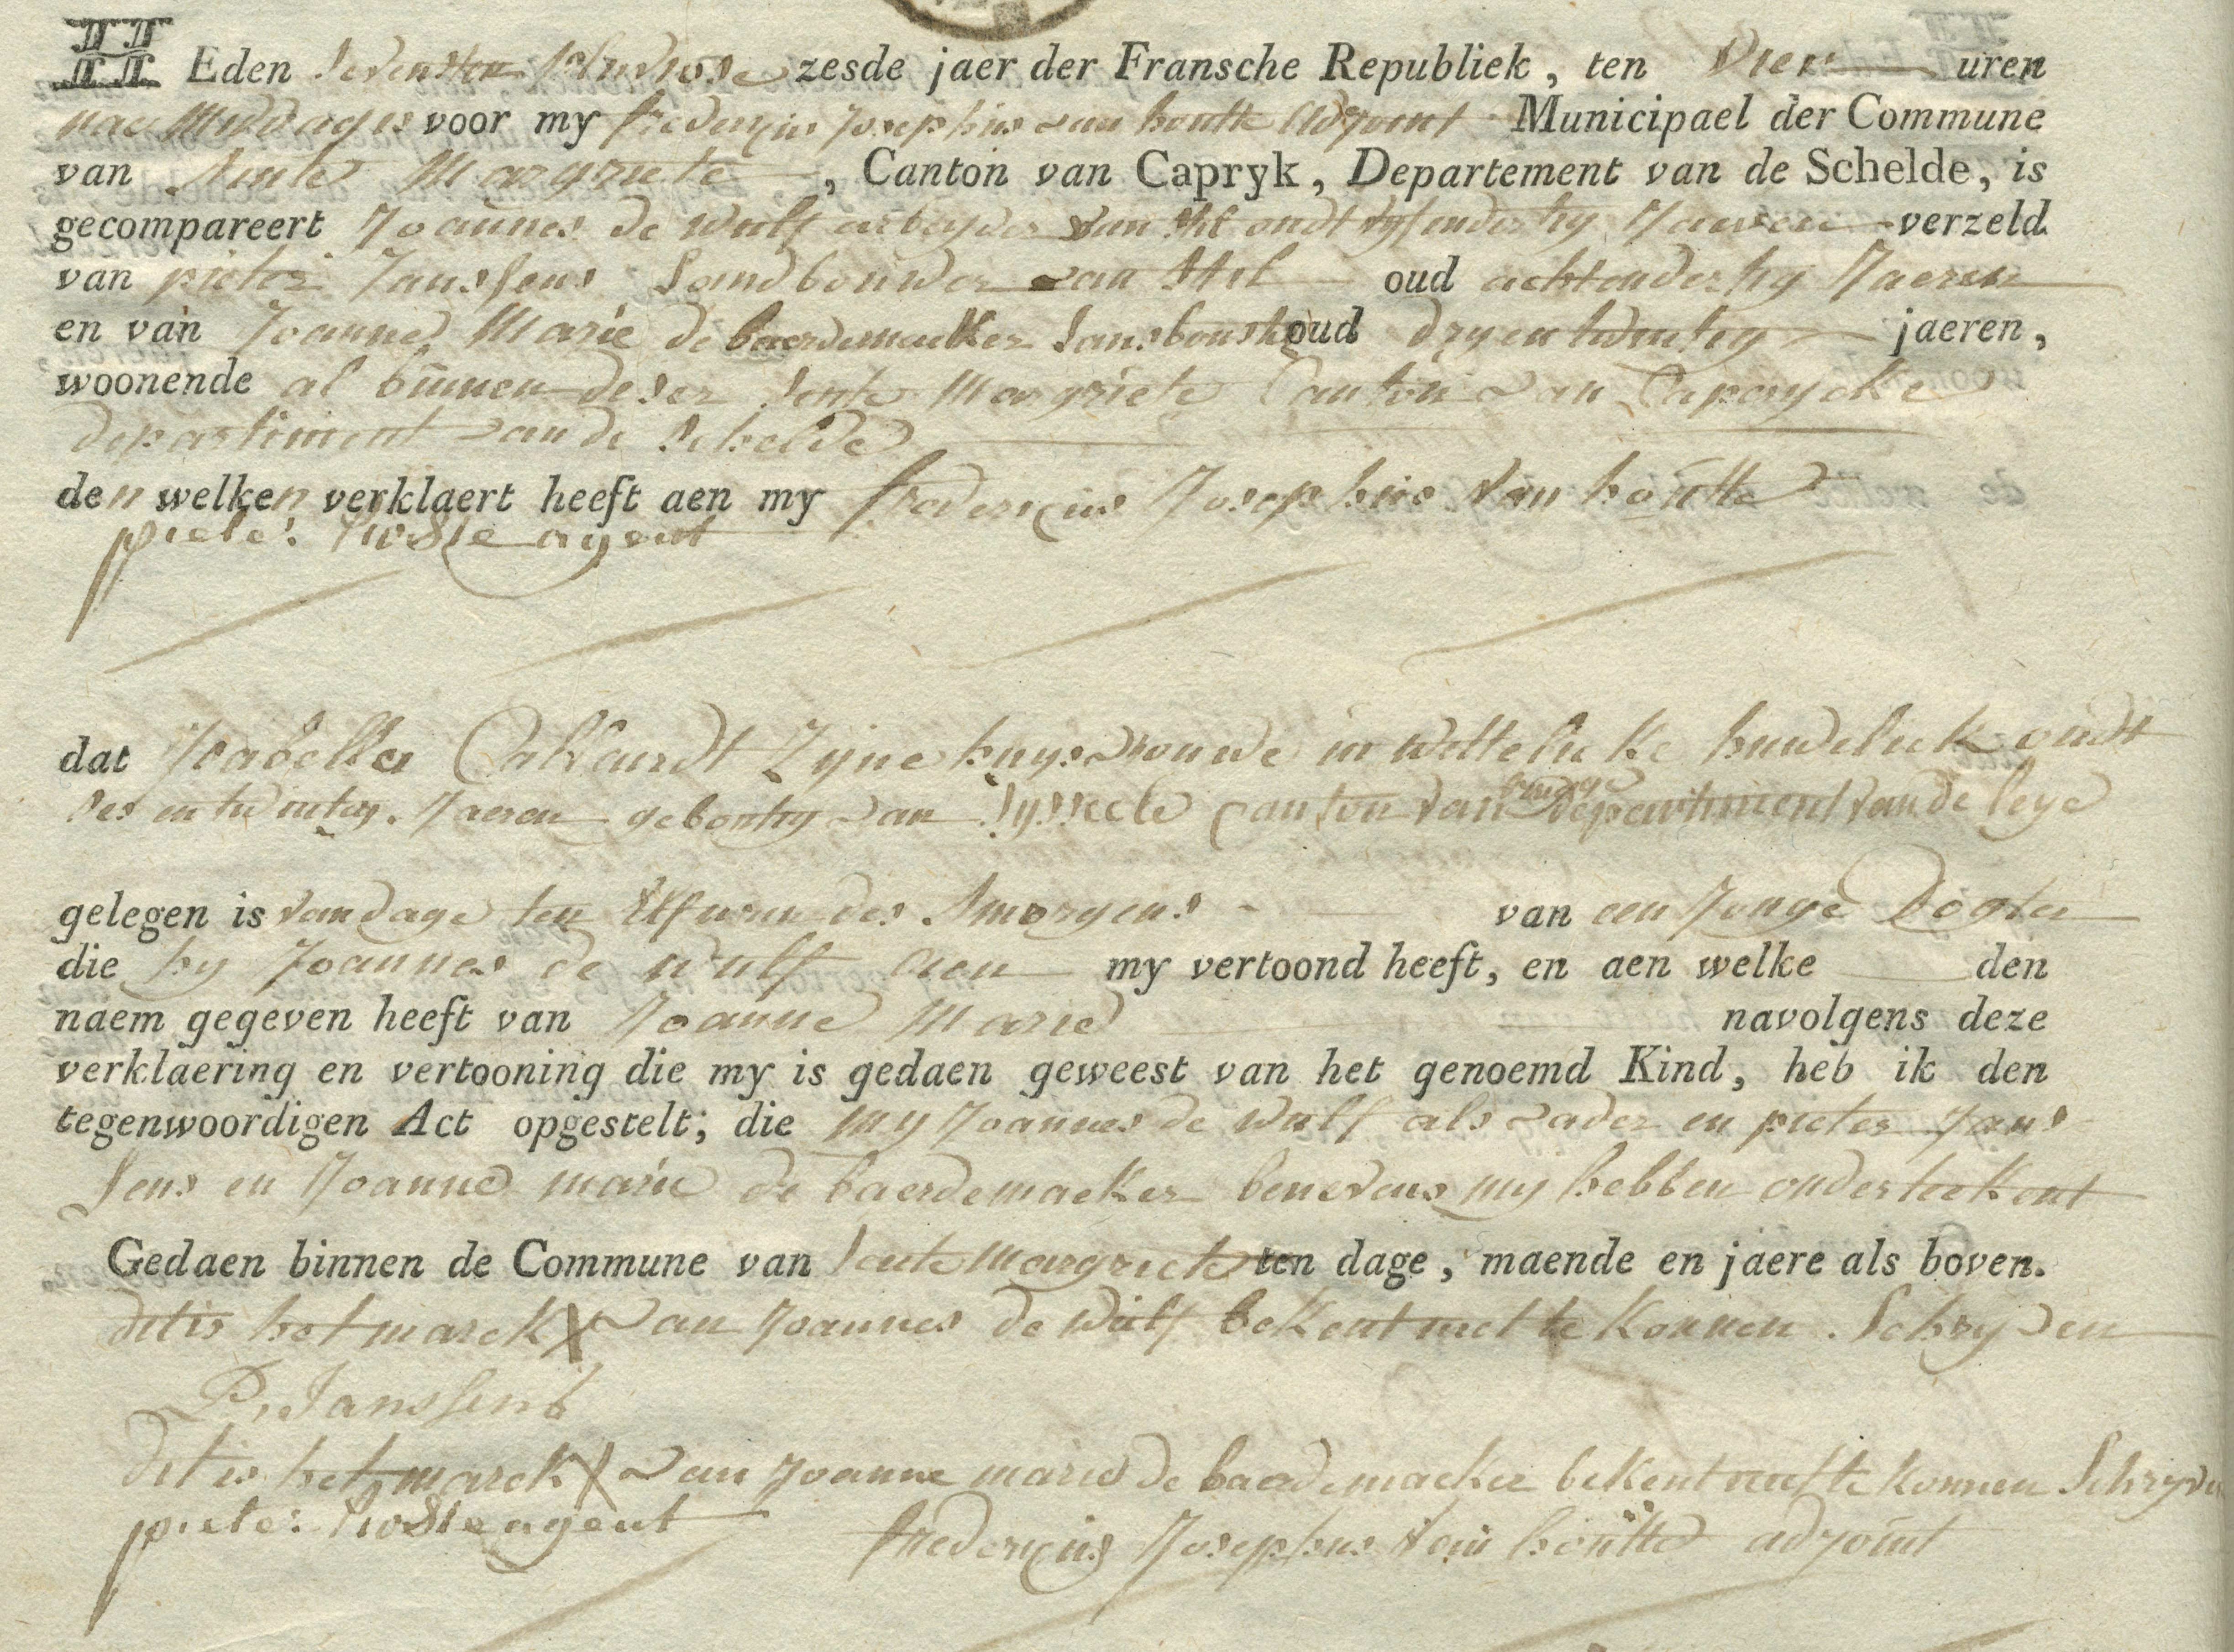 HEden sevensten pluviose zesde jaer der Fransche Republiek, ten vier uren
naer Middag is voor my fredericius Josephus van houtte Adjoint Municipael der Commune
van sinte Margriete, Canton van Capryk, Departement van de Schelde, is
gecompareert Joannes de wulf arbeyder van stil oudt vyfendertig Jaeren verzeld
van pieter Janssens Landbouwer van Stil oud achtendertig Jaeren
en van Joanne Marie de baerdemaeker oud dryentwintig jaeren,
woonende al binnen deser sente Margriete Canton van Caprycke
departiment van de schelde
den welken verklaert heeft aen my fredericius Josephus van houtte
pieter agent
dat Isabella Callandt Zyne huysvrouwe in wettelicke huwelick oudt
ses en twintig Jaeren gebortig van Sysseele canton van brugge departiment van de leye
gelegen is van dage ten Elf uren des smorgens van een Jonge Dogter
die hy Joannes de wulf aen my vertoond heeft, en aen welke den
naem gegeven heeft van Joanne Marie navolgens deze
verklaering en vertooning die my is gedaen geweest van het genoemd Kind, heb ik den
tegenwoordigen Act opgestelt; die my Joannes de wulf als vader en pieter Jans
sens en Joanne marie de baerdemaeker benevens my hebben onderteekent
Gedaen binnen de Commune van sente Margriete ten dage, maende en jaere als boven.
dit is het marck X van Joannes de wulf bekent niet te konnen Schryven
P. Janssens
dit is het marck X van Joanne marie de baerdemaeker bekent niet te konnen Schryven
pieter agent fredericius Josephus van houtte adjoint